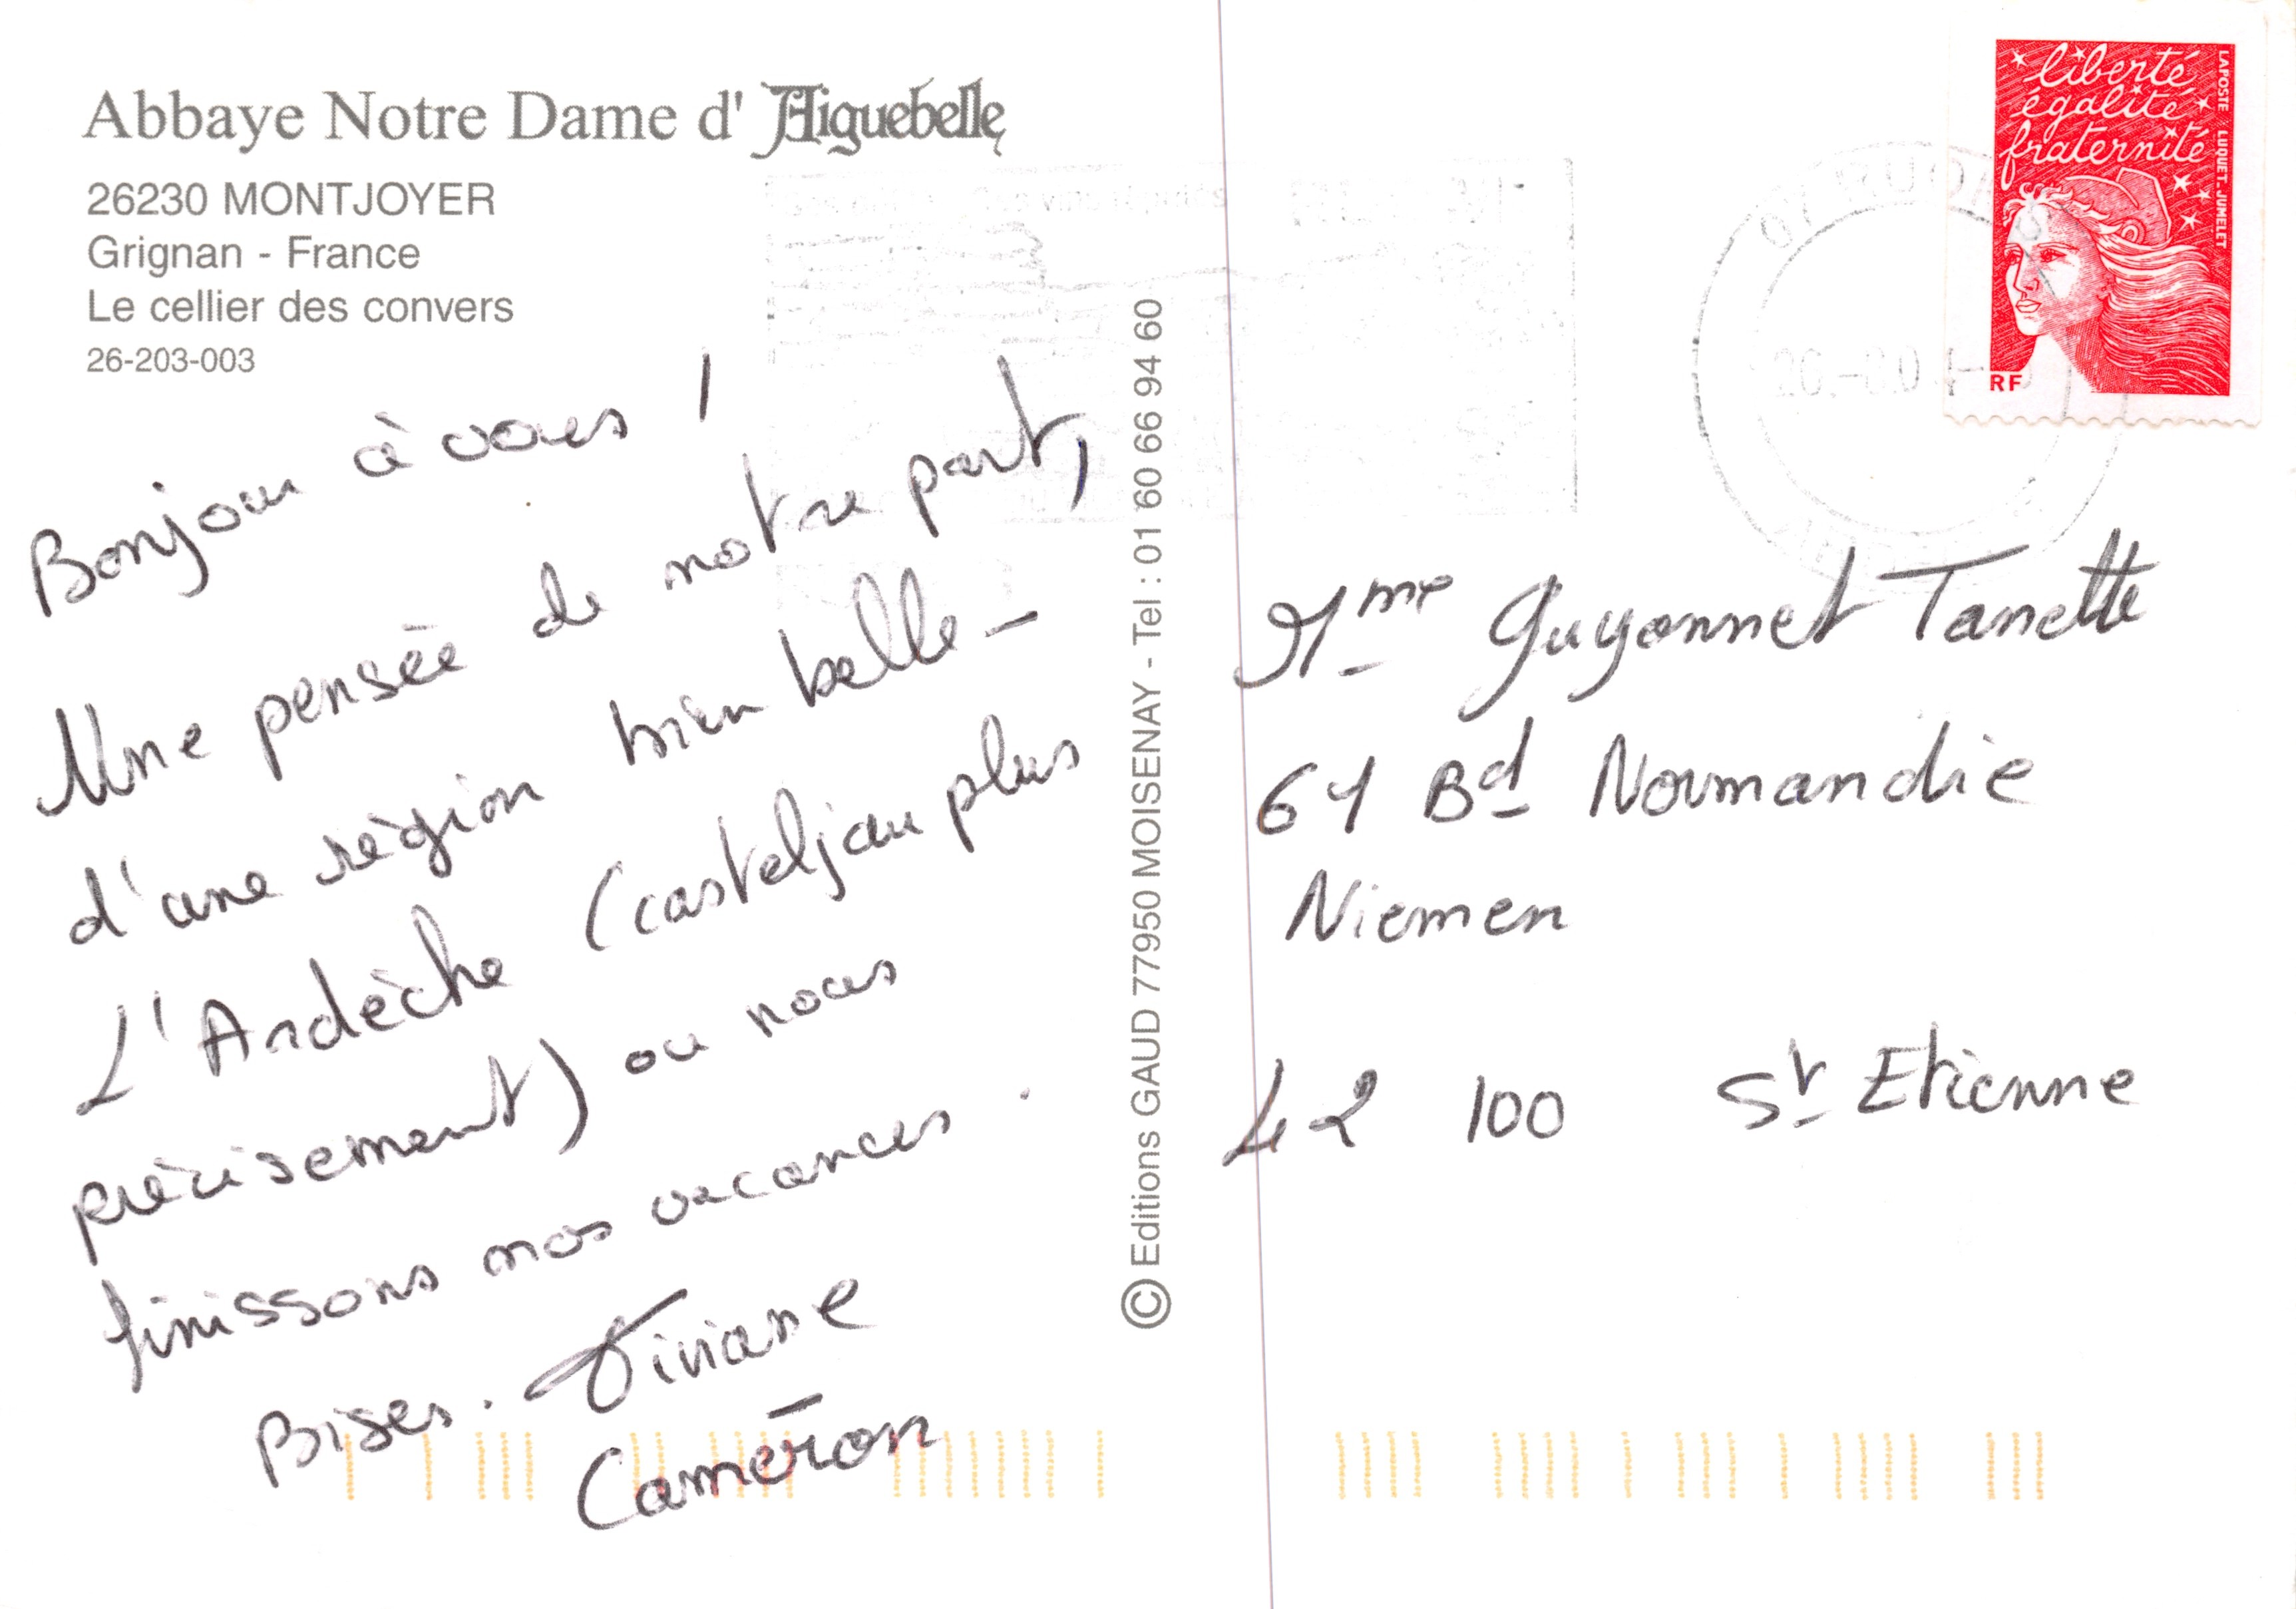 Abbaye Notre Dame d' Aiguebelle
26230 MONTJOYER
Grignan - France
Le cellier des convers
26-203-003
Bonjour à vous !
Une pensée de notre part,
d'une région bien belle -
L'Ardèche (casteljau plus
précisement) ou nous
finissons nos vacances .
Bises. Viviane
Caméron
© Editions GAUD 77950 MOISENAY - Tel : 01 60 66 94 60
liberté
égalité
fraternité
LA POSTE LUQUET-JUMELET
RF
Mme Guyonnet Tanette
61 Bd Normandie
Niemen
42 100 St Etienne